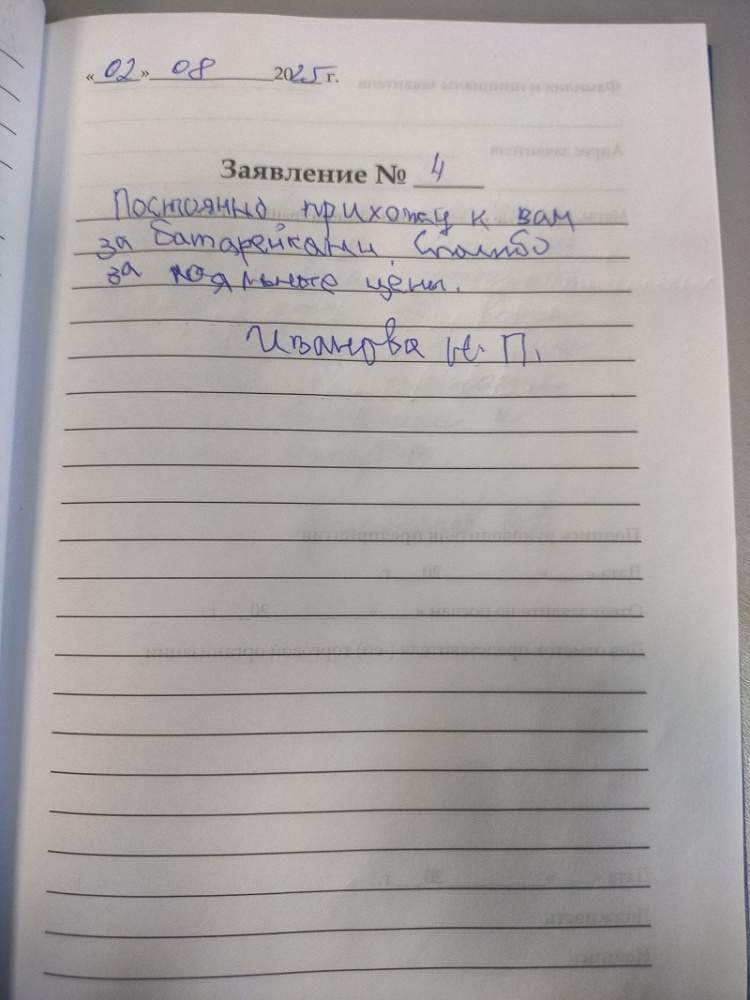 «02» 08 2025 г.
Заявление № 4
Постоянно прихожу к вам
за батарейками. Спасибо
за лояльные цены.
Иванова Н. П.